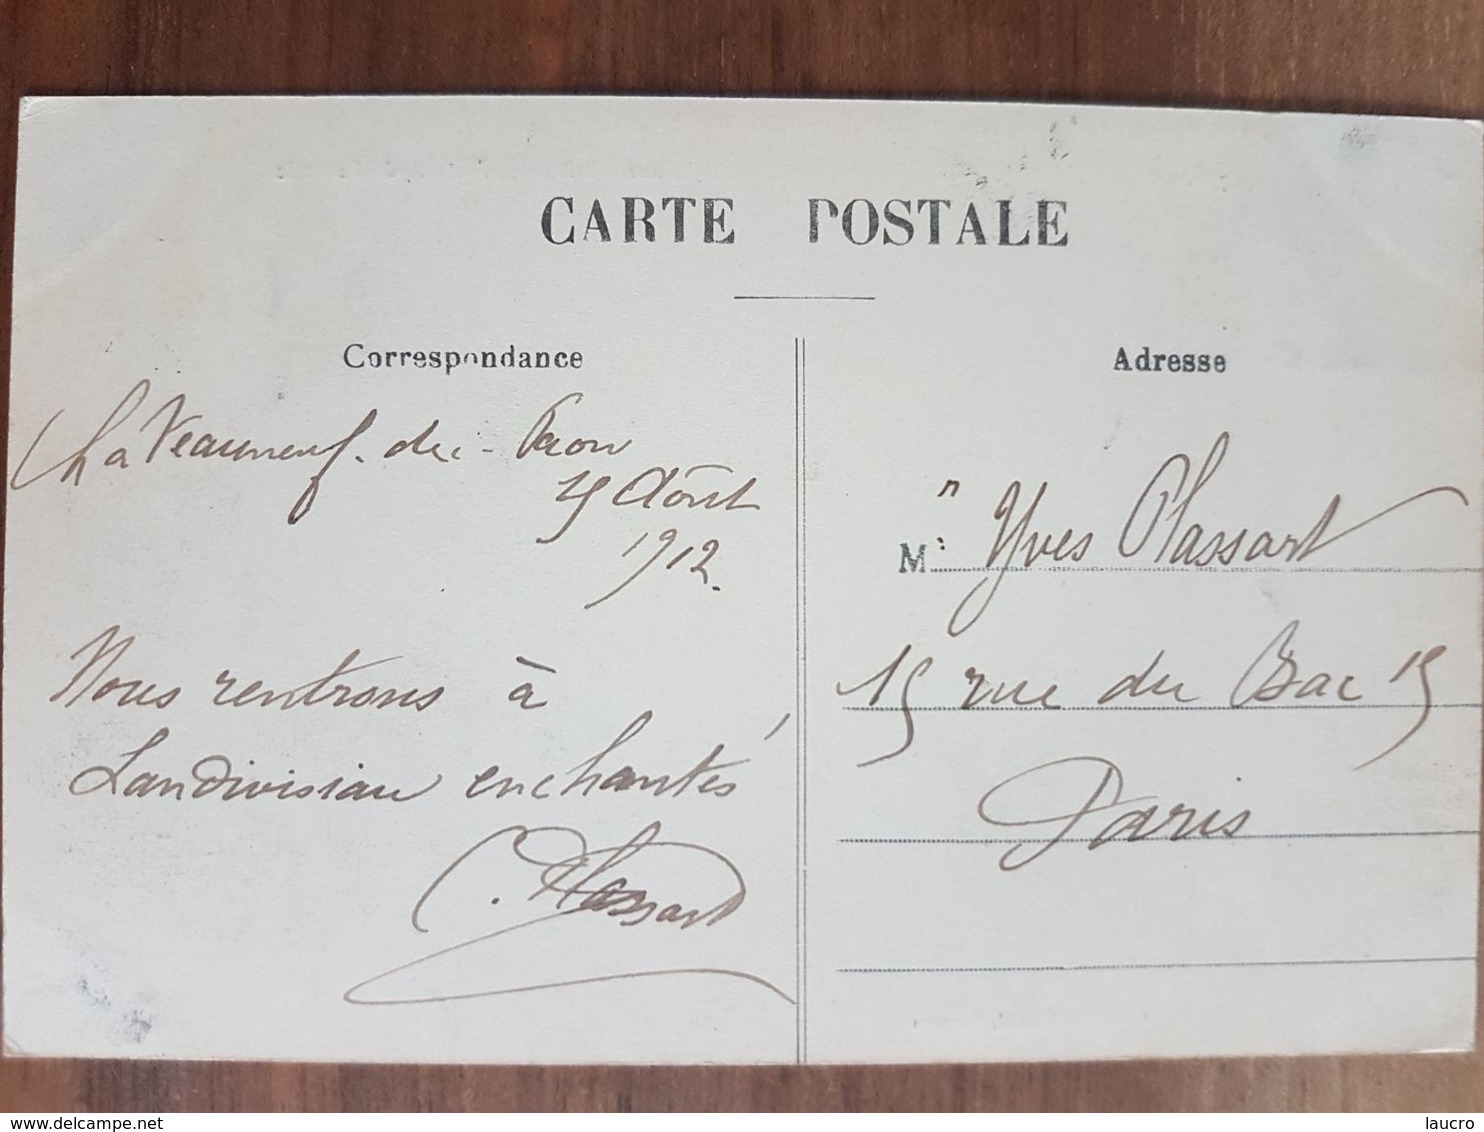 CARTE POSTALE
Correspondance
Châteauneuf-du-Faou
Août
1912.
Nous rentrons à
Landivisiau enchantés
C. Plassart
Adresse
Mr Yves Plassart
15 rue du Bac 15
Paris
delcampe.net
laucro